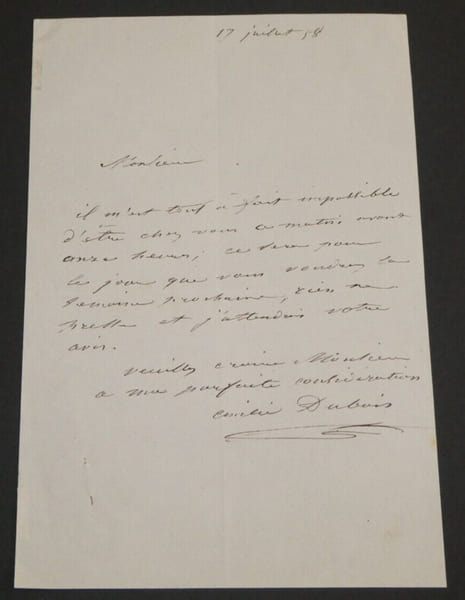 17 juillet 58
Monsieur
il m'est tout à fait impossible
d'être chez vous ce matin avant
onze heures; ce sera pour
le jour que vous voudrez la
semaine prochaine, rien ne
presse et j'attendrai votre
avis.
veuillez croire Monsieur
a ma parfaite considération
emilie Dubois